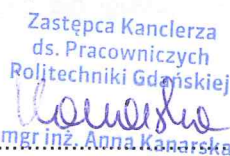 Zastępca Kanclerza
ds. Pracowniczych
Politechniki Gdańskiej
Kanarska
mgr inż. Anna Kanarska